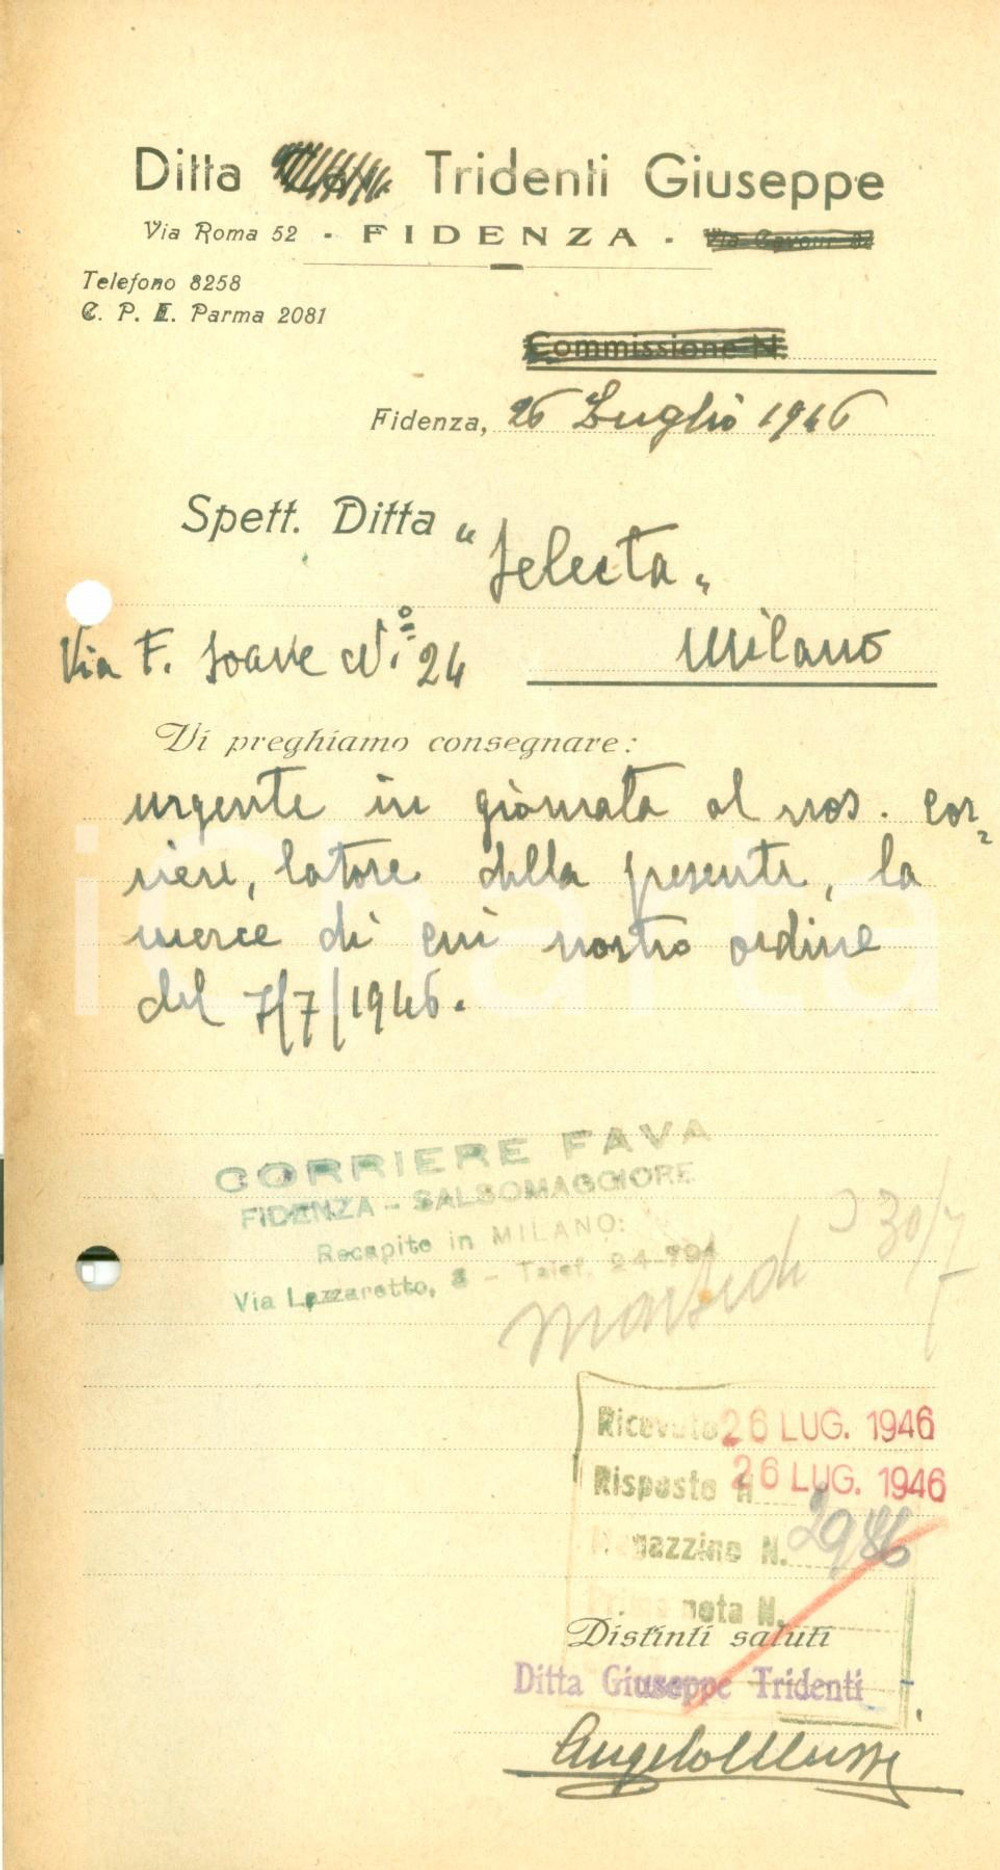 Ditta Tridenti Giuseppe
Via Roma 52 - FIDENZA - Via Cavour 32
Telefono 8258
C. P. E. Parma 2081
Commissione N.
Fidenza, 26 Luglio 1946
Spett. Ditta "Selecta"
Via F. Soave N.° 24 Milano
Vi preghiamo consegnare:
urgente in giornata al nos. cor-
riere, latore della presente, la
merce di cui nostro ordine
del 7/7/1946.
CORRIERE FAVA
FIDENZA - SALSOMAGGIORE
Recapito in MILANO:
Via Lazzaretto, 3 - Telef. 24-794
martedi 30/7
Ricevuto 26 LUG. 1946
Risposto il 26 LUG. 1946
Magazzino N. 2986
Prima nota N.
Distinti saluti
Ditta Giuseppe Tridenti
Angelo Mussi